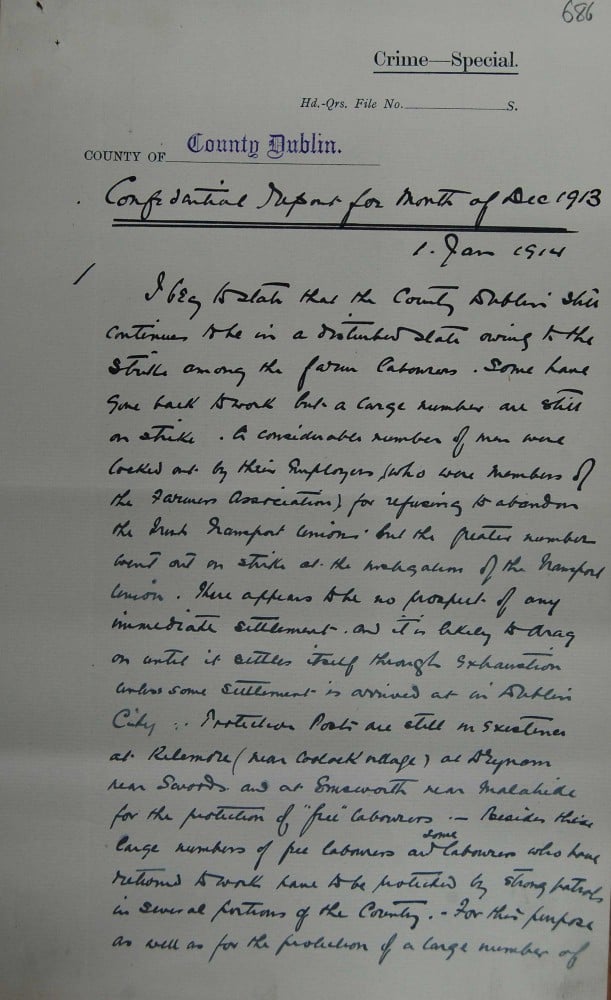 686
Crime—Special.
Hd.-Qrs. File No. S.
COUNTY OF County Dublin.
Confidential Report for Month of Dec 1913
1. Jan 1914
1
I beg to state that the County Dublin still
continues to be in a disturbed state owing to the
strike among the farm labourers. Some have
gone back to work but a large number are still
on strike. A considerable number of men were
locked out by their Employers (who were members of
the Farmers Association) for refusing to abandon
the Irish Transport Union: but the greater number
went out on strike at the instigation of the Transport
Union. There appears to be no prospect of any
immediate settlement and it is likely to drag
on until it settles itself through exhaustion
unless some settlement is arrived at in Dublin
City :. Protection Posts are still in existence
at Kilmore (near Coolock village) at
near Swords and at Emsworth near Malahide
for the protection of "free" labourers :- Besides these
large numbers of free labourers and some labourers who have
returned to work have to be protected by strong patrols
in several portions of the County. - For this purpose
as well as for the protection of a large number of